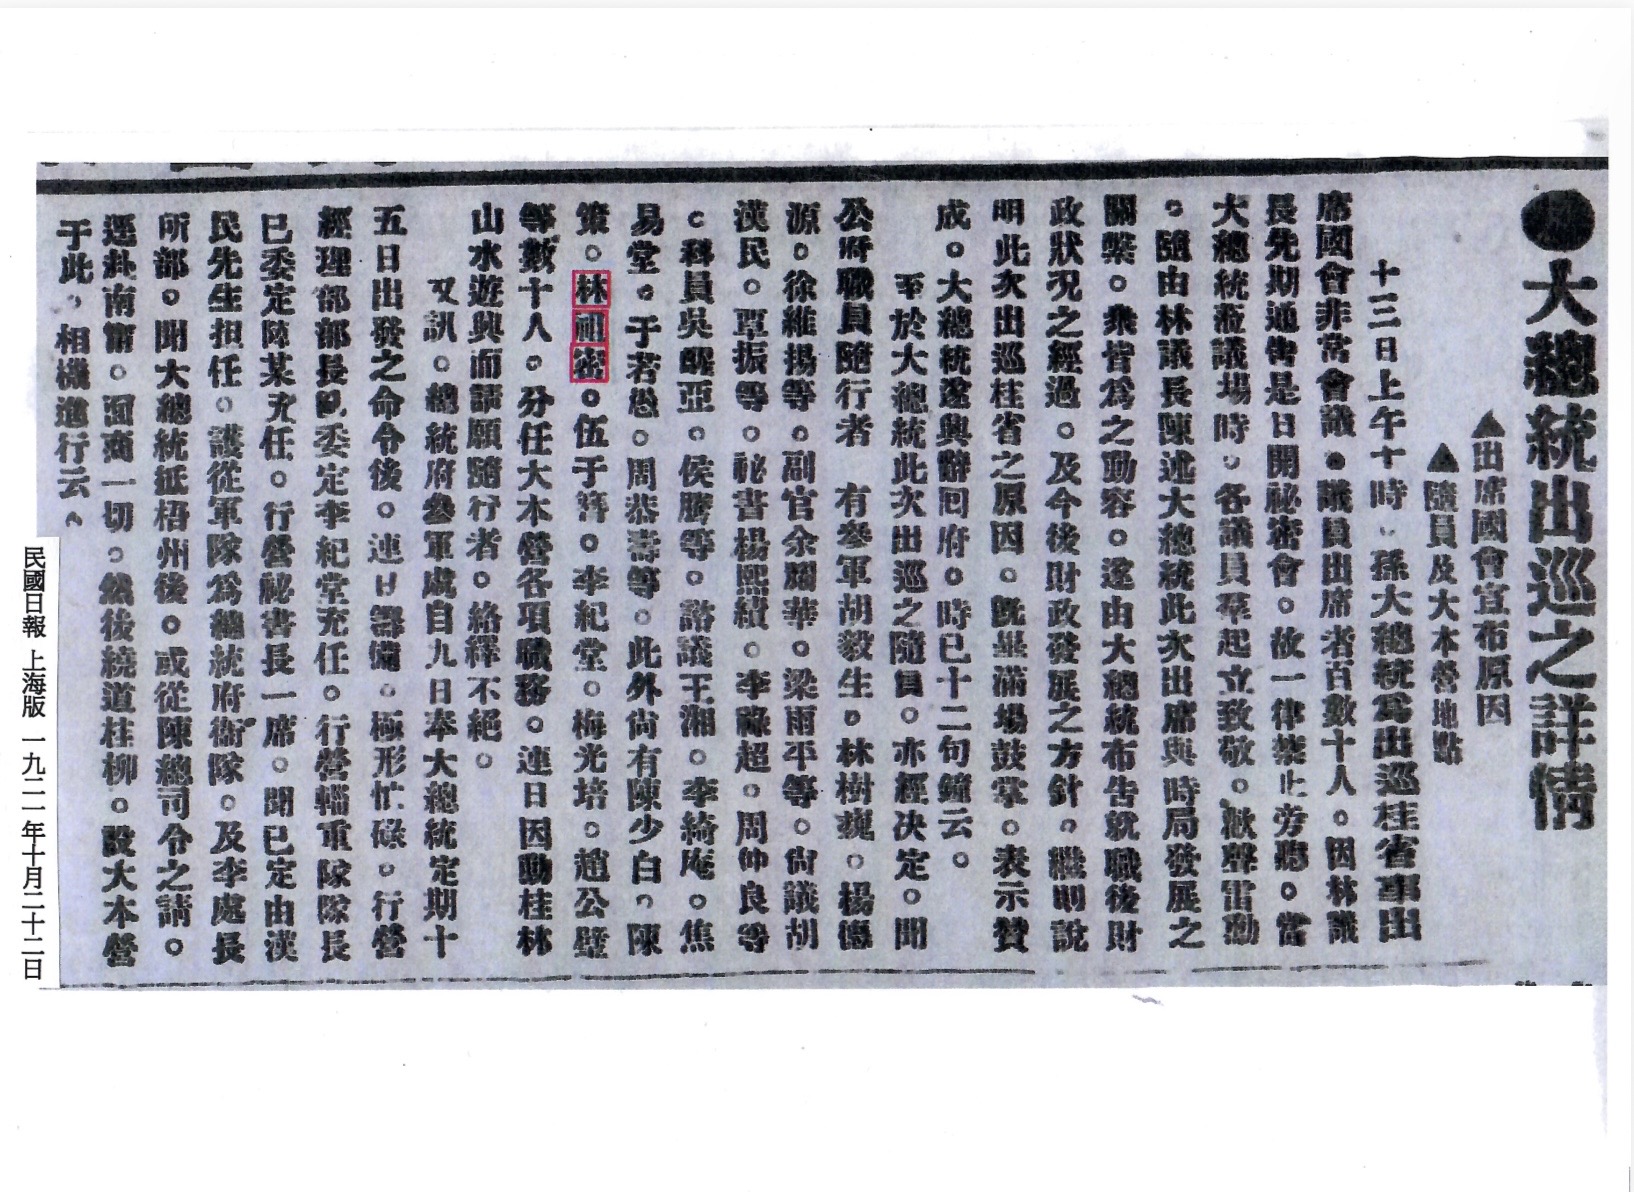 ●大總統出巡之詳情
▲出席國會宣布原因
▲隨員及大本營地點
十三日上午十時。孫大總統爲出巡桂省事出
席國會非常會議。議員出席者百數十人。因林議
長先期通告是日開祕密會。故一律禁止旁聽。當
大總統蒞議場時。各議員羣起立致敬。歡聲雷動
。隨由林議長陳述大總統此次出席與時局發展之
關槃。衆皆爲之動容。遂由大總統布告就職後財
政狀况之經過。及今後財政發展之方針。繼則說
明此次出巡桂省之原因。旣畢滿塲鼓掌。表示贊
成。大總統遂興辭囘府。時已十二句鐘云。
至於大總統此次出巡之隨員。亦經决定。聞
公府職員隨行者 有參軍胡毅生。林樹巍。楊德
源。徐維揚等。副官余關華。梁雨平等。諮議胡
漢民。覃振等。祕書楊熙績。李祿超。周仲良等
。科員吳曙亞。侯騰等。諮議王湘。李綺庵。焦
易堂。于若愚。周恭壽等。此外尙有陳少白。陳
策。林祖密。伍于簪。李紀堂。梅光培。趙公璧
等數十人。分任大本營各項職務。連日因動桂林
山水遊興而請願隨行者。絡繹不絕。
又訊。總統府參軍處自九日奉大總統定期十
五日出發之命令後。連日籌備。極形忙碌。行營
經理部部長則委定李紀堂充任。行營輜重隊隊長
已委定陳某充任。行營祕書長一席。聞已定由漢
民先生担任。護從軍隊爲總統府衞隊。及李處長
所部。聞大總統抵梧州後。或從陳總司令之請。
逕赴南甯。面商一切。然後繞道桂柳。設大本營
于此，相機進行云。
民國日報 上海版 一九二一年十月二十二日